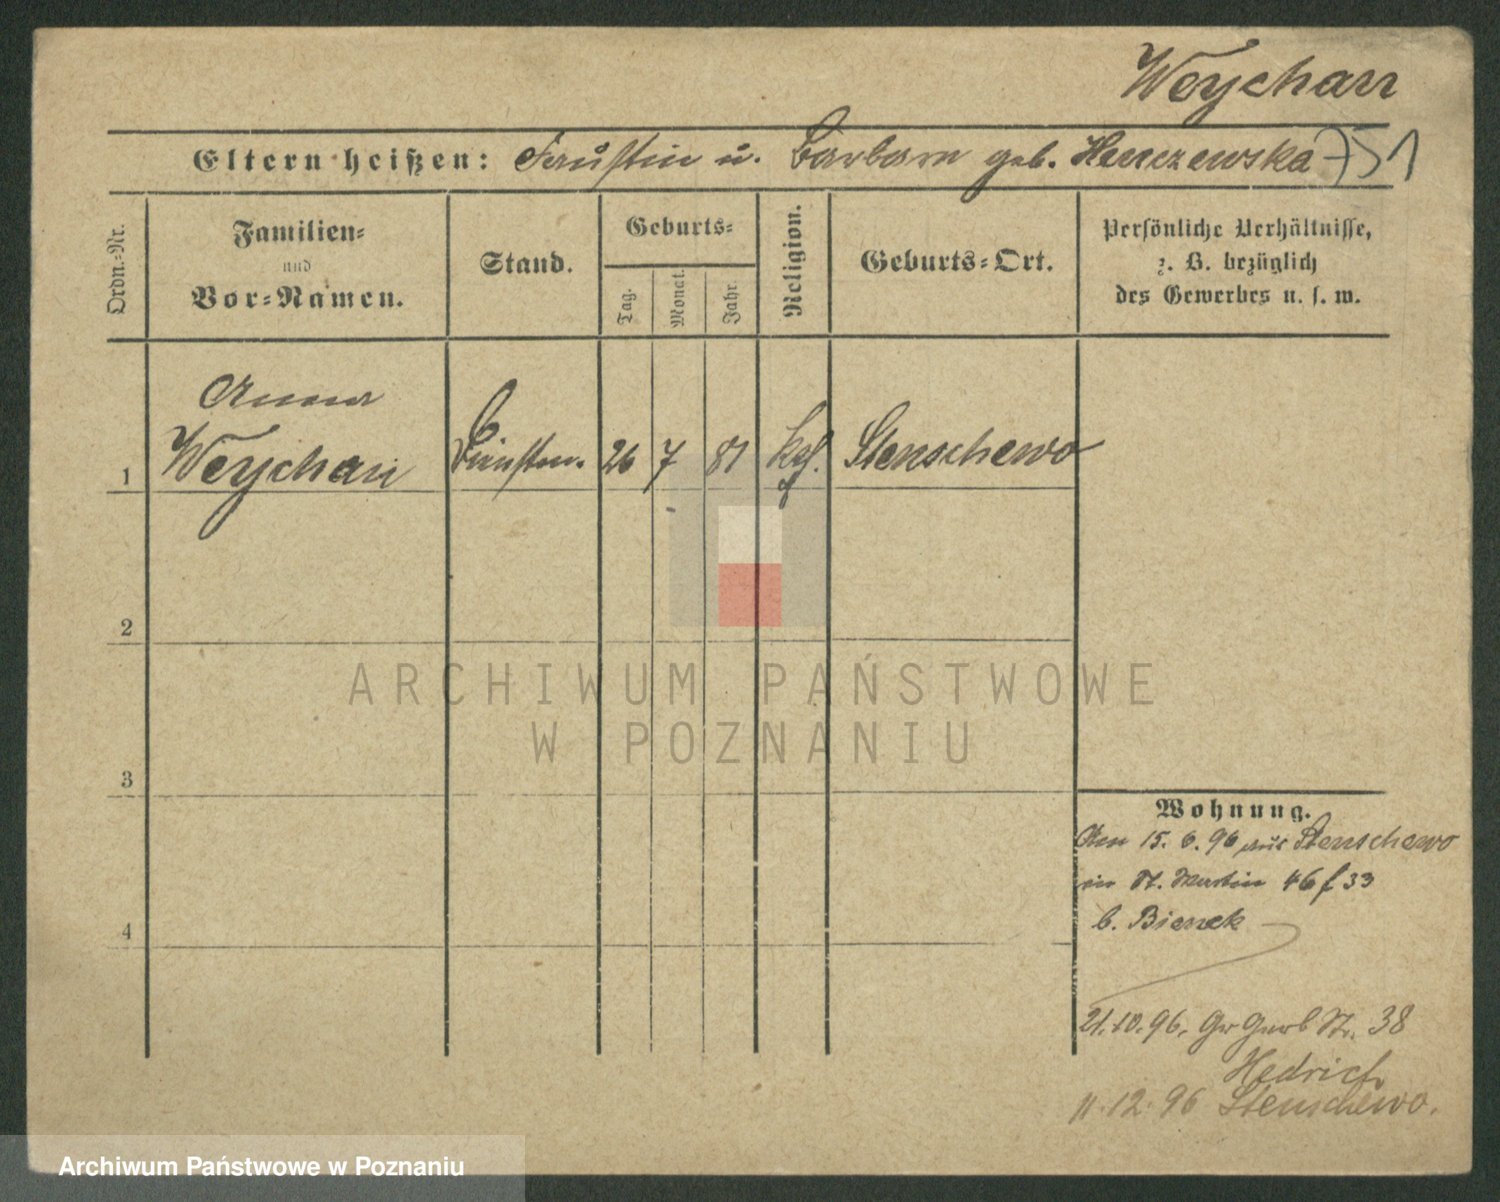 Weychan
Eltern heißen: Faustin u. Barbara geb. Henczewska 751
Ordn.-Nr.
Familien-
und
Vor-Namen.
Stand.
Geburts-
Tag.
Monat.
Jahr.
Religion.
Geburts-Ort.
Persönliche Verhältnisse,
z. B. bezüglich
des Gewerbes u. s. w.
Anna
1 Weychan 26 7 81 kath. Stenschewo
2
3
4
ARCHIWUM PAŃSTWOWE
W POZNANIU
Wohnung.
Am 15. 6. 96 aus Stenschewo
in St. Martin 46 33
b. Bienek
21.10.96. Gr Gerb Str. 38
Hedrich
11.12.96 Stenschewo.
Archiwum Państwowe w Poznaniu